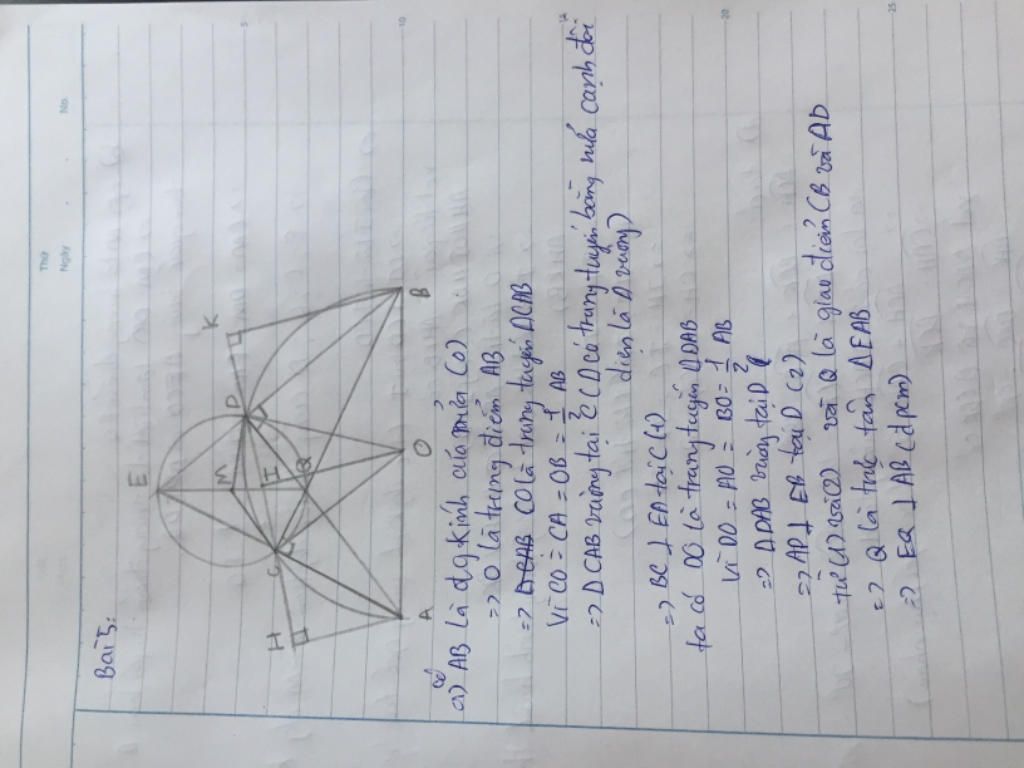 Thứ
Ngày
No.
5
10
20
25
Bài 5:
E
H
K
C
D
M
I
Q
A
O
B
a) có AB là đg kính của nửa (O)
=> O là trung điểm AB
=> CO là trung tuyến ΔCAB
Vì CO = OA = OB = 1/2 AB
=> ΔCAB vuông tại C (Δ có trung tuyến bằng nửa cạnh đối
diện là Δ vuông)
=> BC ⊥ EA tại C (1)
ta có DO là trung tuyến ΔDAB
Vì DO = AO = BO = 1/2 AB
=> ΔDAB vuông tại D
=> AD ⊥ EB tại D (2)
từ (1) và (2) và Q là giao điểm CB và AD
=> Q là trực tâm ΔEAB
=> EQ ⊥ AB (đpcm)